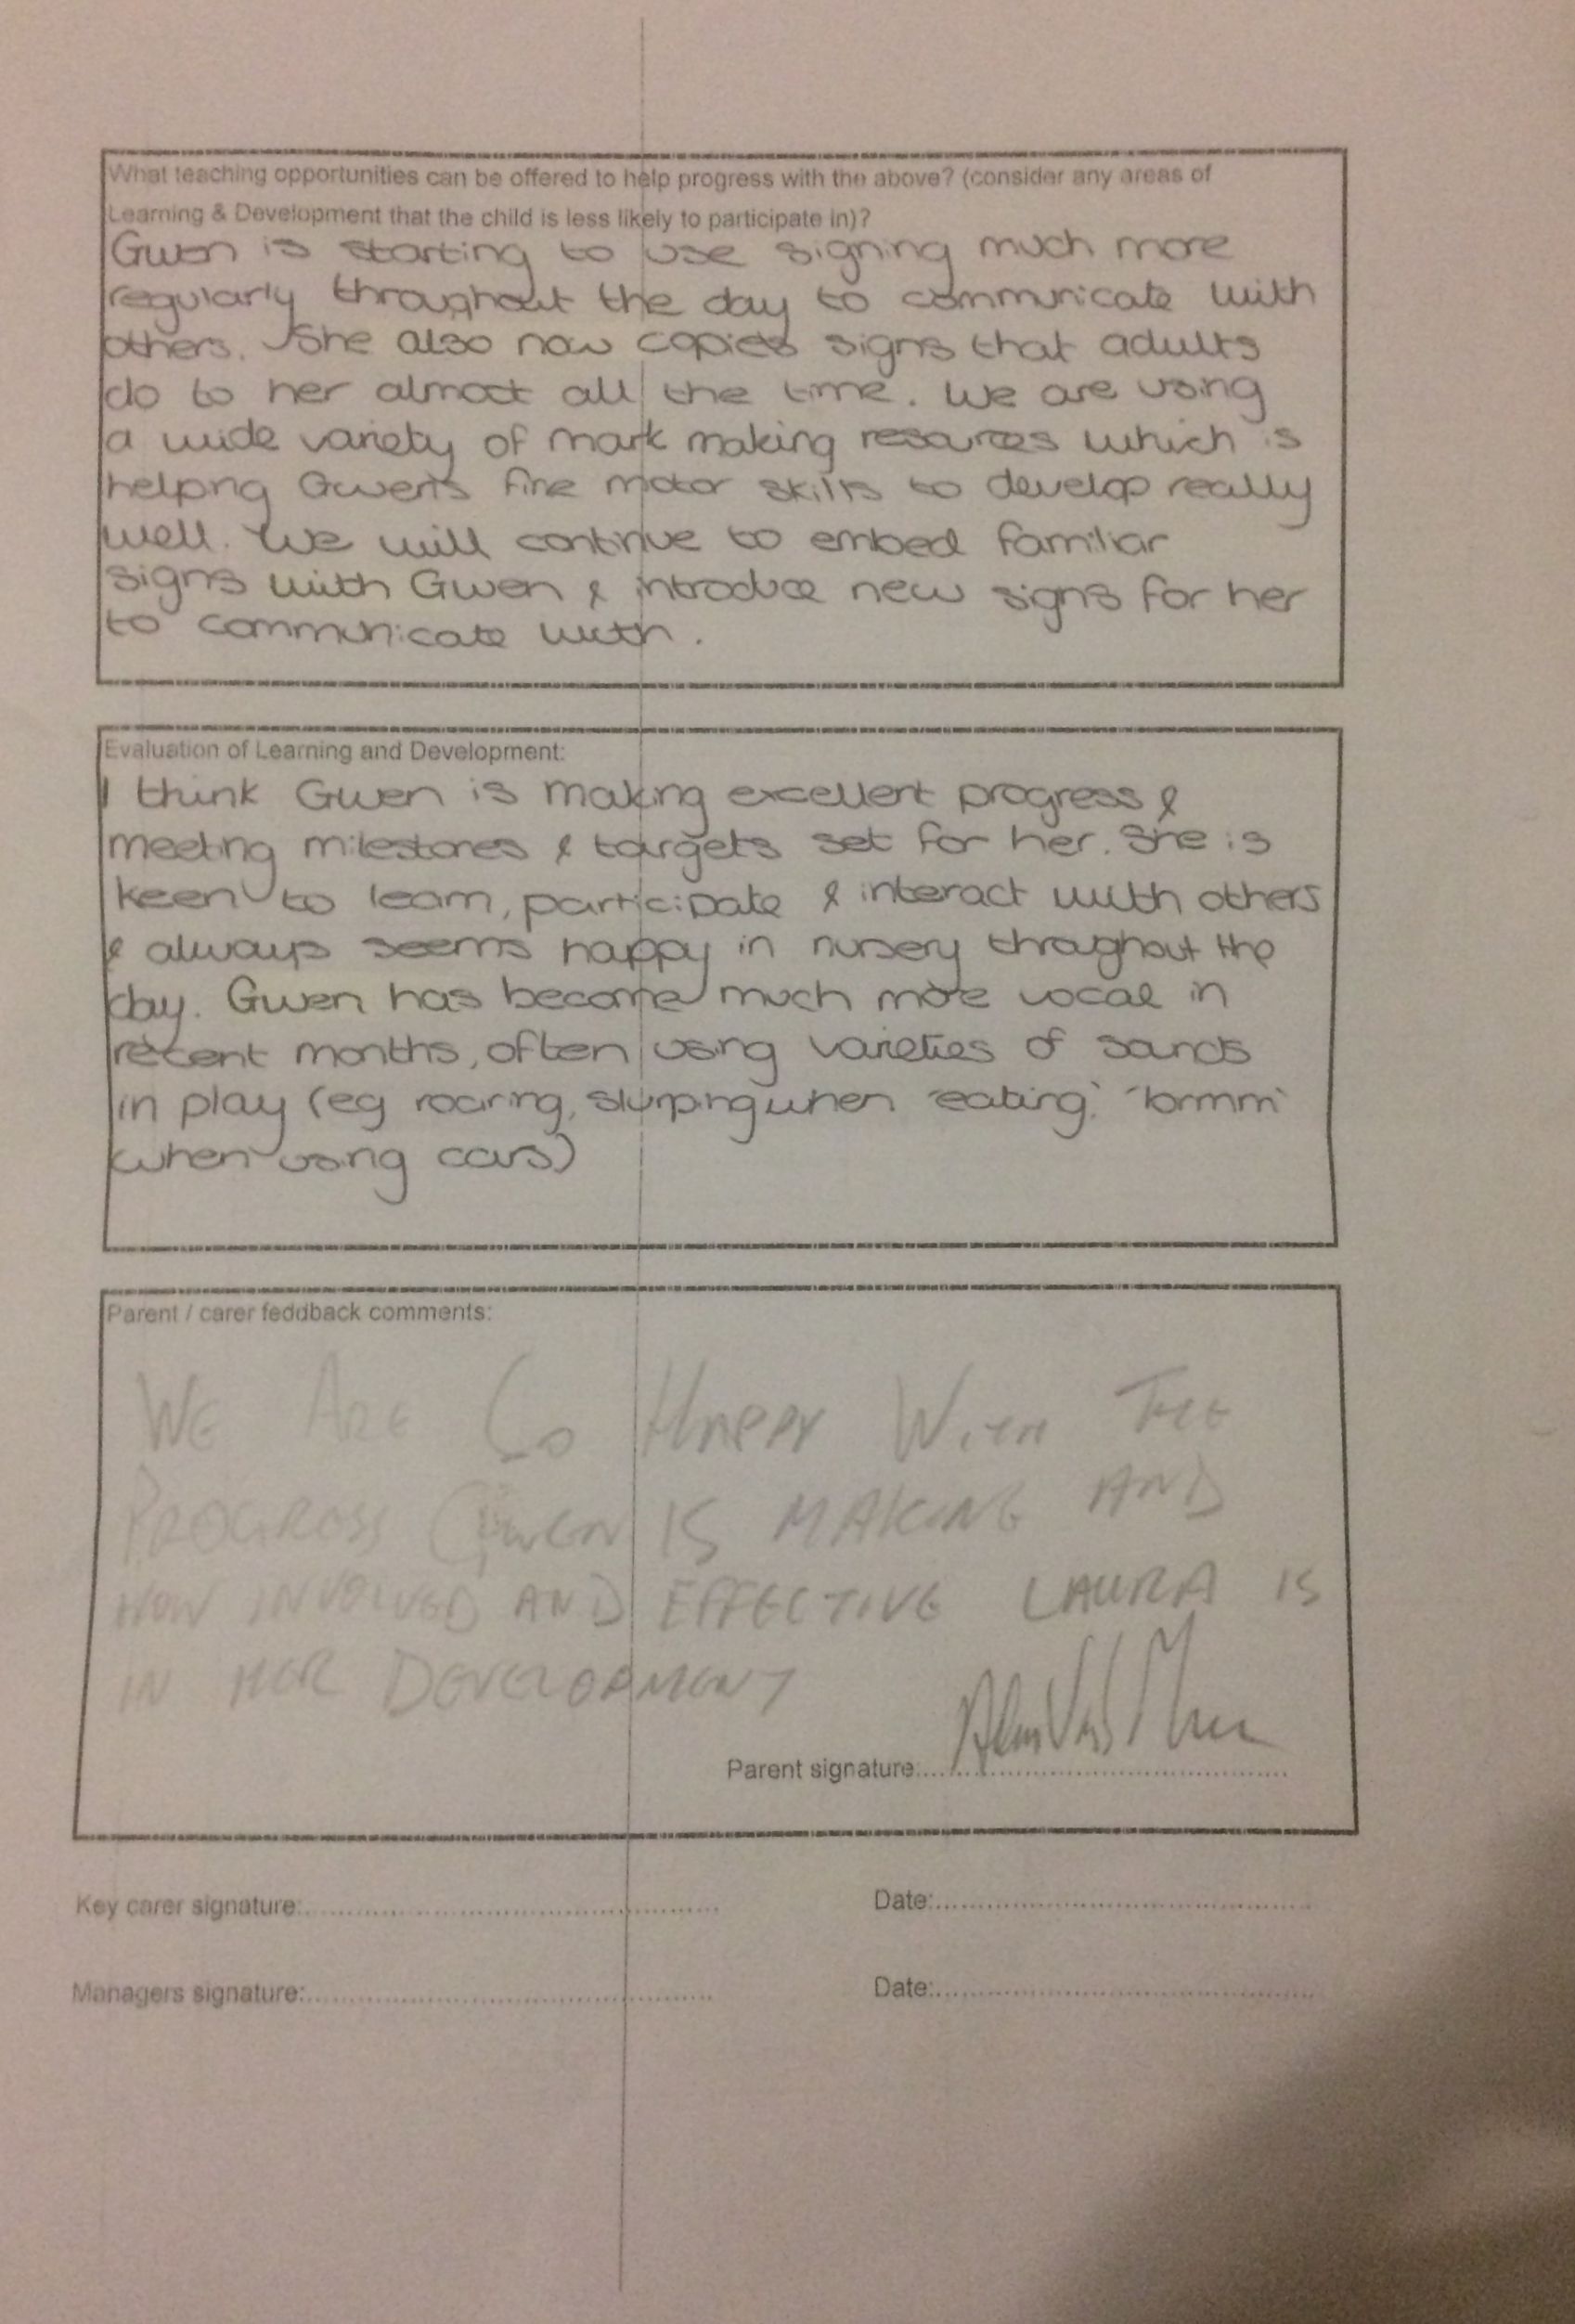 What teaching opportunities can be offered to help progress with the above? (consider any areas of
Learning & Development that the child is less likely to participate in)?
Gwen is starting to use signing much more
regularly throughout the day to communicate with
others. She also now copies signs that adults
do to her almost all the time. We are using
a wide variety of mark making resources which is
helping Gwen's fine motor skills to develop really
well. We will continue to embed familiar
signs with Gwen & introduce new signs for her
to communicate with.
Evaluation of Learning and Development:
I think Gwen is making excellent progress &
meeting milestones & targets set for her. She is
keen to learn, participate & interact with others
& always seems happy in nursery throughout the
day. Gwen has become much more vocal in
recent months, often using varieties of sounds
in play (eg roaring, slurping when 'eating', 'brmm'
when using cars)
Parent / carer feddback comments:
WE ARE SO HAPPY WITH THE
PROGRESS GWEN IS MAKING AND
HOW INVOLVED AND EFFECTIVE LAURA IS
IN HER DEVELOPMENT
Parent signature:
Key carer signature: Date:
Managers signature: Date: